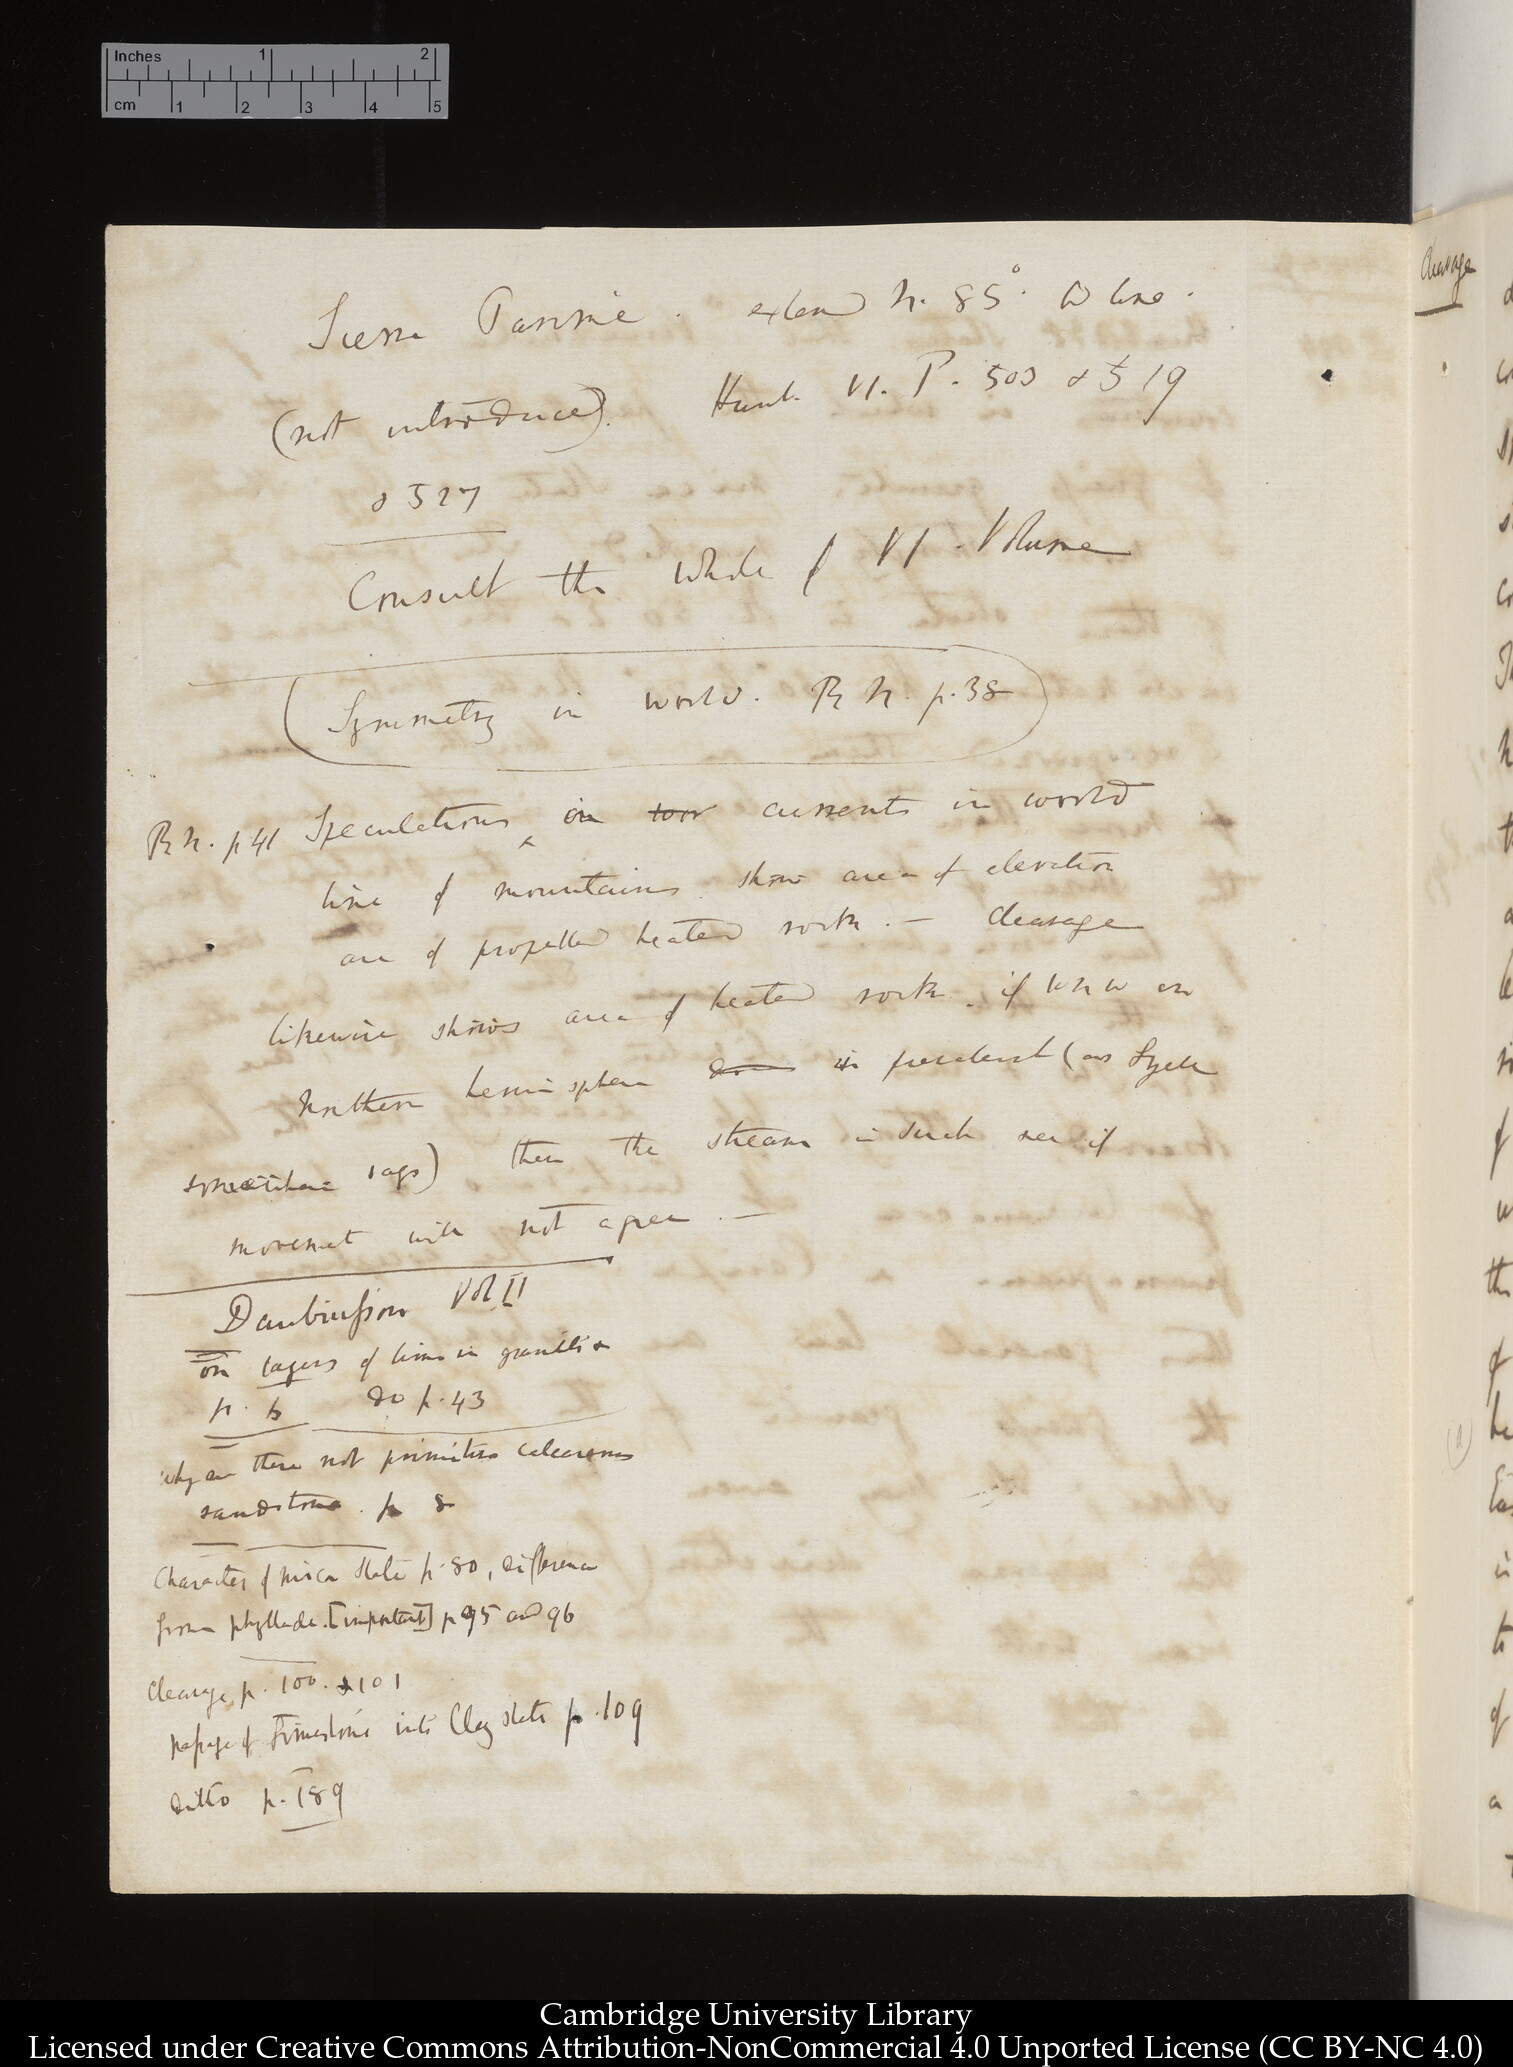 Inches 1 2
cm 1 2 3 4 5
Sierra Parime. extend N. 85°. W line.
(not introduced). Humb. VI. P. 503 & 519
& 527
Consult the whole of VI. Volume
(Symmetry in world. R N. p. 38)
R N. p 41 Speculations ^ in wor currents in world
line of mountains show area of elevation
are of propelled heated rocks. — Cleavage
likewise shows area of heated rocks. if WNW in
Northern hemisphere is prevalent (as Lyell
somewhere says) then the stream in such sea if
movement will not agree. —
Daubuisson Vol II
on layers of lime in granite &
p. do p. 43
why are there not primitive calcareous
sandstone. p 8
Character of mica slate p. 80, difference
from phyllade. [important] p 95 and 96
Cleavage p. 100. & 101
passage of Limestone into Clay slate p. 109
ditto p. 189
Cleavage
(A)
Cambridge University Library
Licensed under Creative Commons Attribution-NonCommercial 4.0 Unported License (CC BY-NC 4.0)